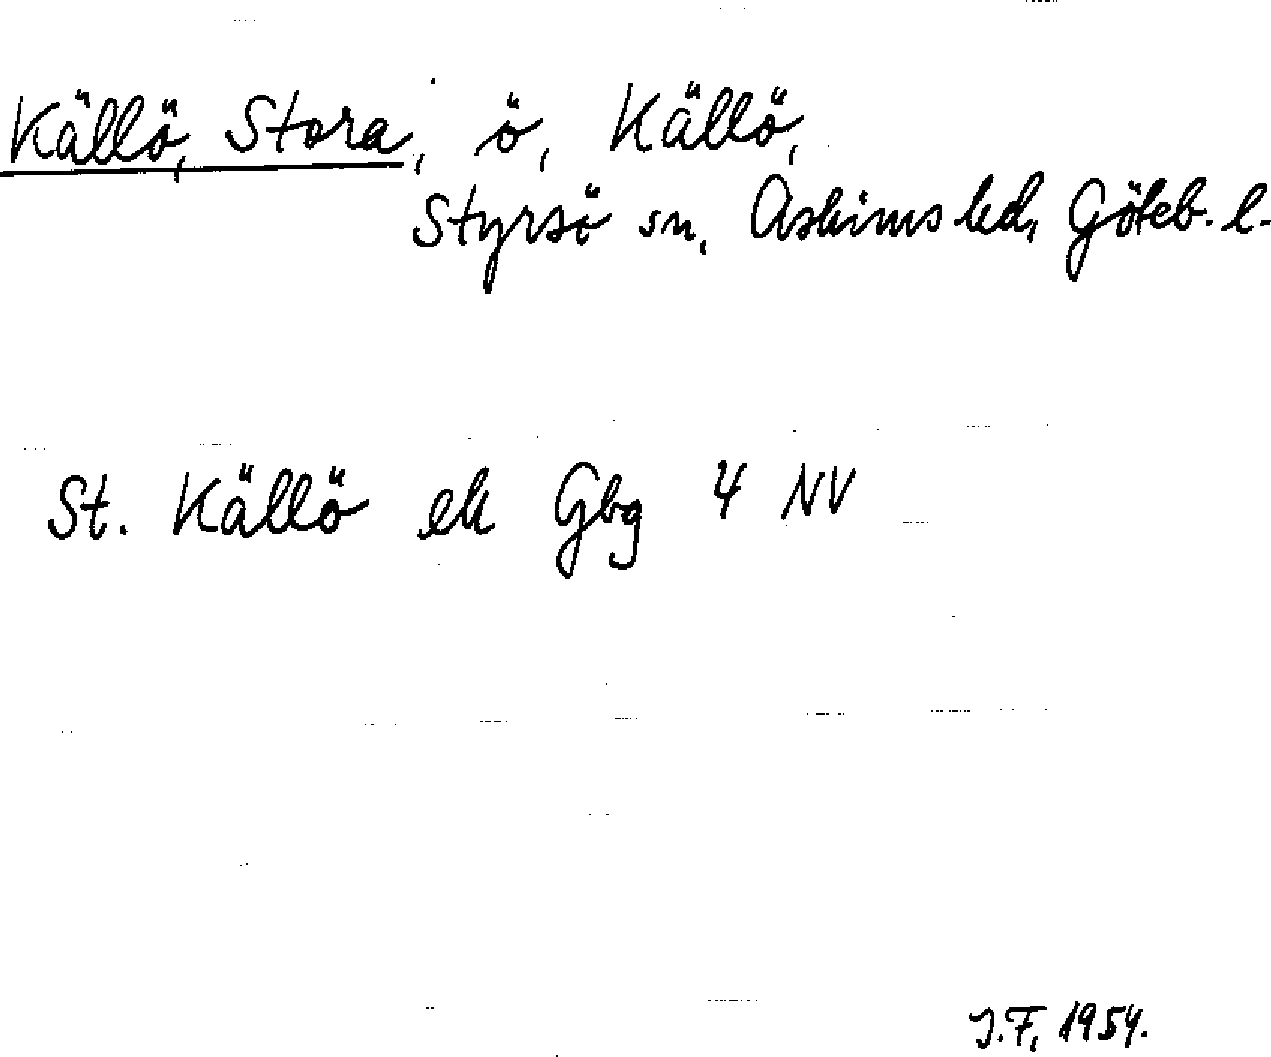 Källö, Stora, ö, Källö,
Styrsö sn, Askims hd, Göteb. l.
St. Källö ek Gbg 4 NV
J.F. 1954.